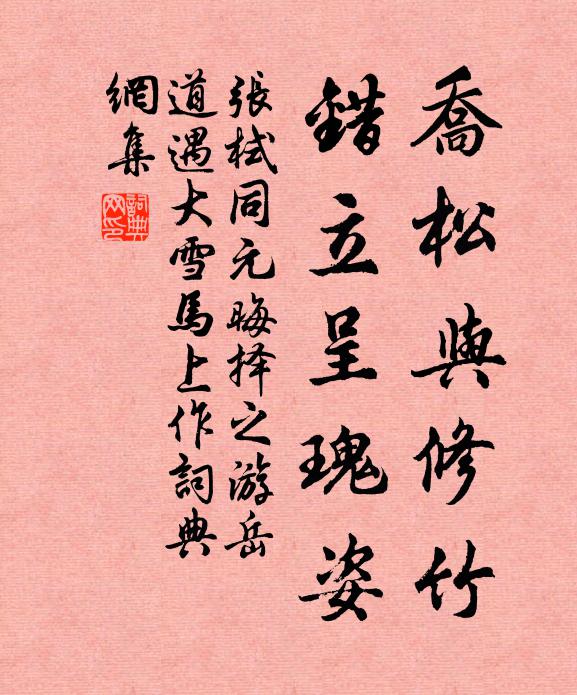 喬松與修竹
錯立呈瑰姿
張栻同元晦择之游岳
道遇大雪馬上作詞典
網集
詞典
网印